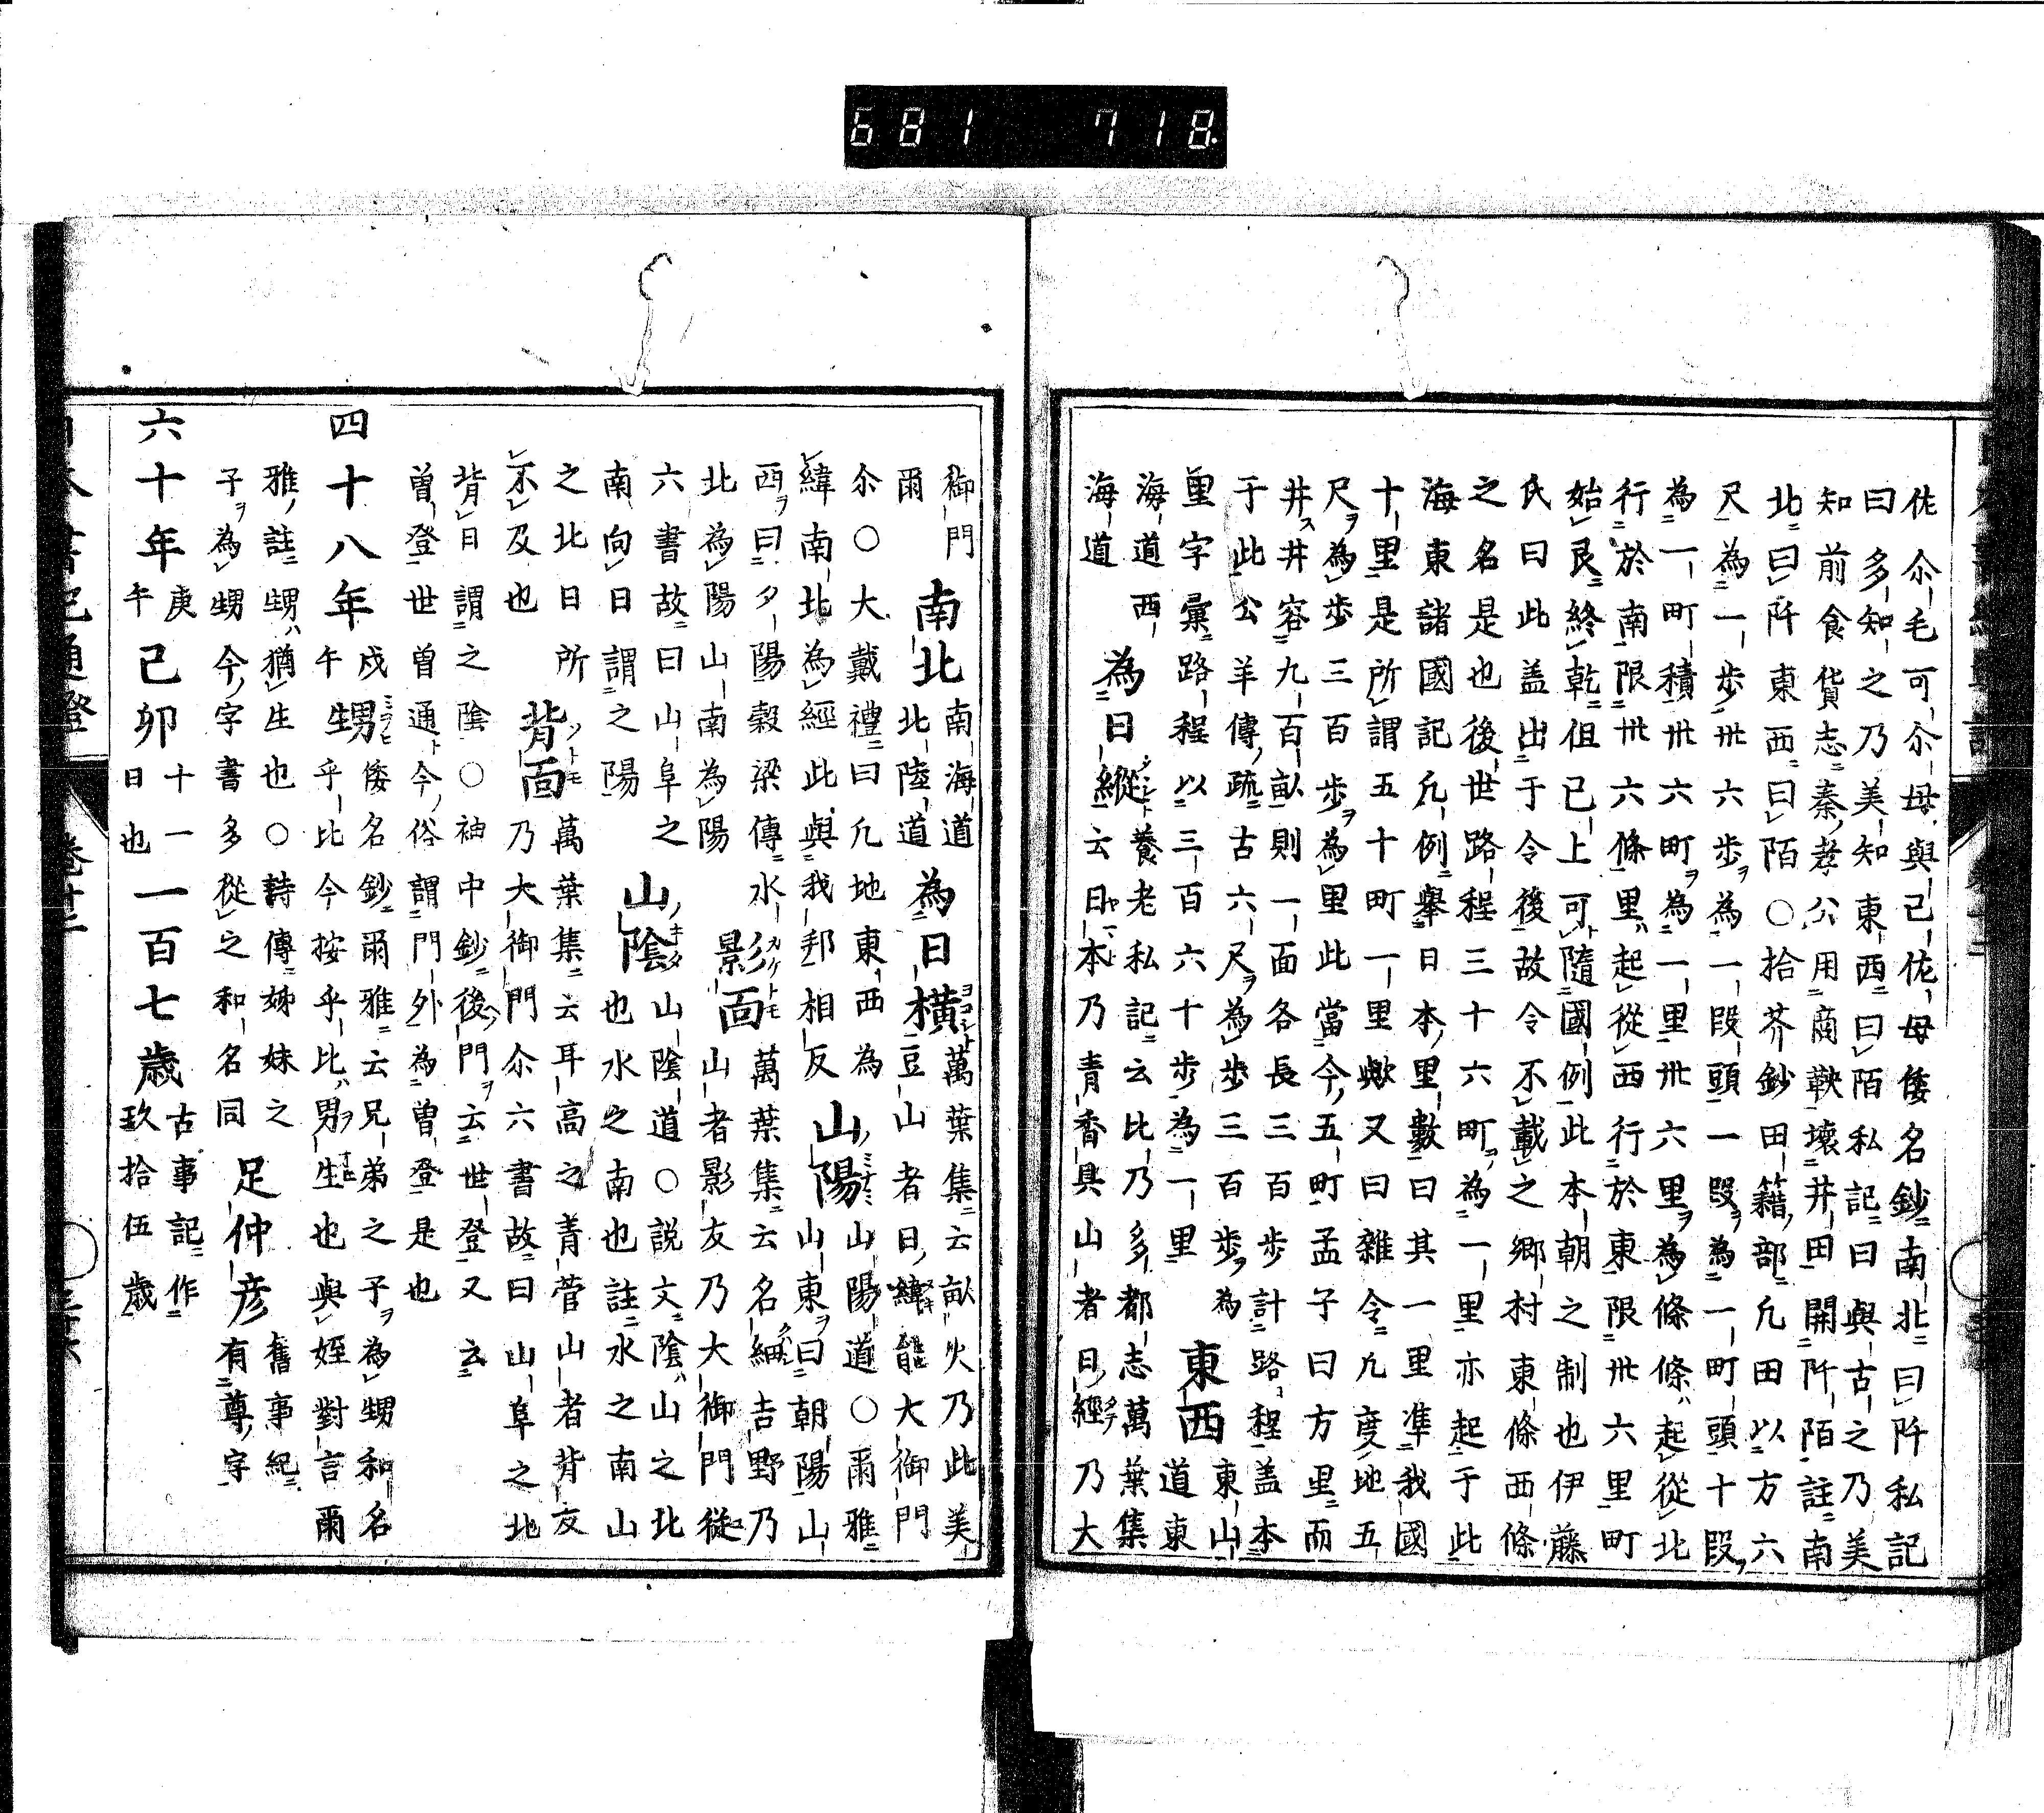 681 718.
佐尒毛可尒母與己佐母倭名鈔南北曰阡私記
曰多知之乃美知東西曰陌私記曰與古之乃美
知前食貨志秦孝公用商鞅壞井田開阡陌註南
北曰阡東西曰陌○拾芥鈔田籍部凡田以方六
尺為一歩卅六歩為一段頭一段為一町頭十段
為一町積卅六町為一里卅六里為條條起從北
行於南限卅六條里起從西行於東限卅六里町
始艮終乾但已上可隨國例此本朝之制也伊藤
氏曰此盖出于令後故令不載之鄉村東條西條
之名是也後世路程三十六町為一里亦起于此
海東諸國記凡例舉日本里數曰其一里準我國
十里是所謂五十町一里歟又曰雜令凡度地五
尺為歩三百歩為里此當今五町孟子曰方里而
井井容九百畝則一面各長三百歩計路程盖本
于此公羊傳疏古六尺為歩三百歩為
里字彙路程以三百六十歩為一里
東西 東山道東
海道西
海道
為日縱 養老私記云比乃多都志萬葉集
云日本乃青香具山者日經乃大
御門
南北 南海道
北陸道
為日橫 萬葉集云畝火乃此美
豆山者日緯能大御門
爾
尒○大戴禮曰凡地東西為
緯南北為經此與我邦相反
山陽 山陽道○爾雅
山東曰朝陽山
西曰夕陽穀梁傳水
北為陽山南為陽
影面 萬葉集云名細吉野乃
山者影友乃大御門從
六書故曰山阜之
南向日謂之陽
山陰 山陰道○説文陰山之北
也水之南也註水之南山
之北日所
不及也
背面 萬葉集云耳高之青菅山者背友
乃大御門尒六書故曰山阜之北
背日謂之陰○袖中鈔後門云世登又云
曽登世曽通今俗謂門外為曽登是也
四十八年 戊午
甥 倭名鈔爾雅云兄弟之子為甥和名
乎比今按乎比男生也與姪對言爾
雅註甥猶生也○詩傳姊妹之
子為甥今字書多從之和名同
足仲彦 舊事紀
有尊字
六十年 庚午
己卯 十一日也
一百七歳 古事記作
玖拾伍歳
日本書紀通證 卷十二